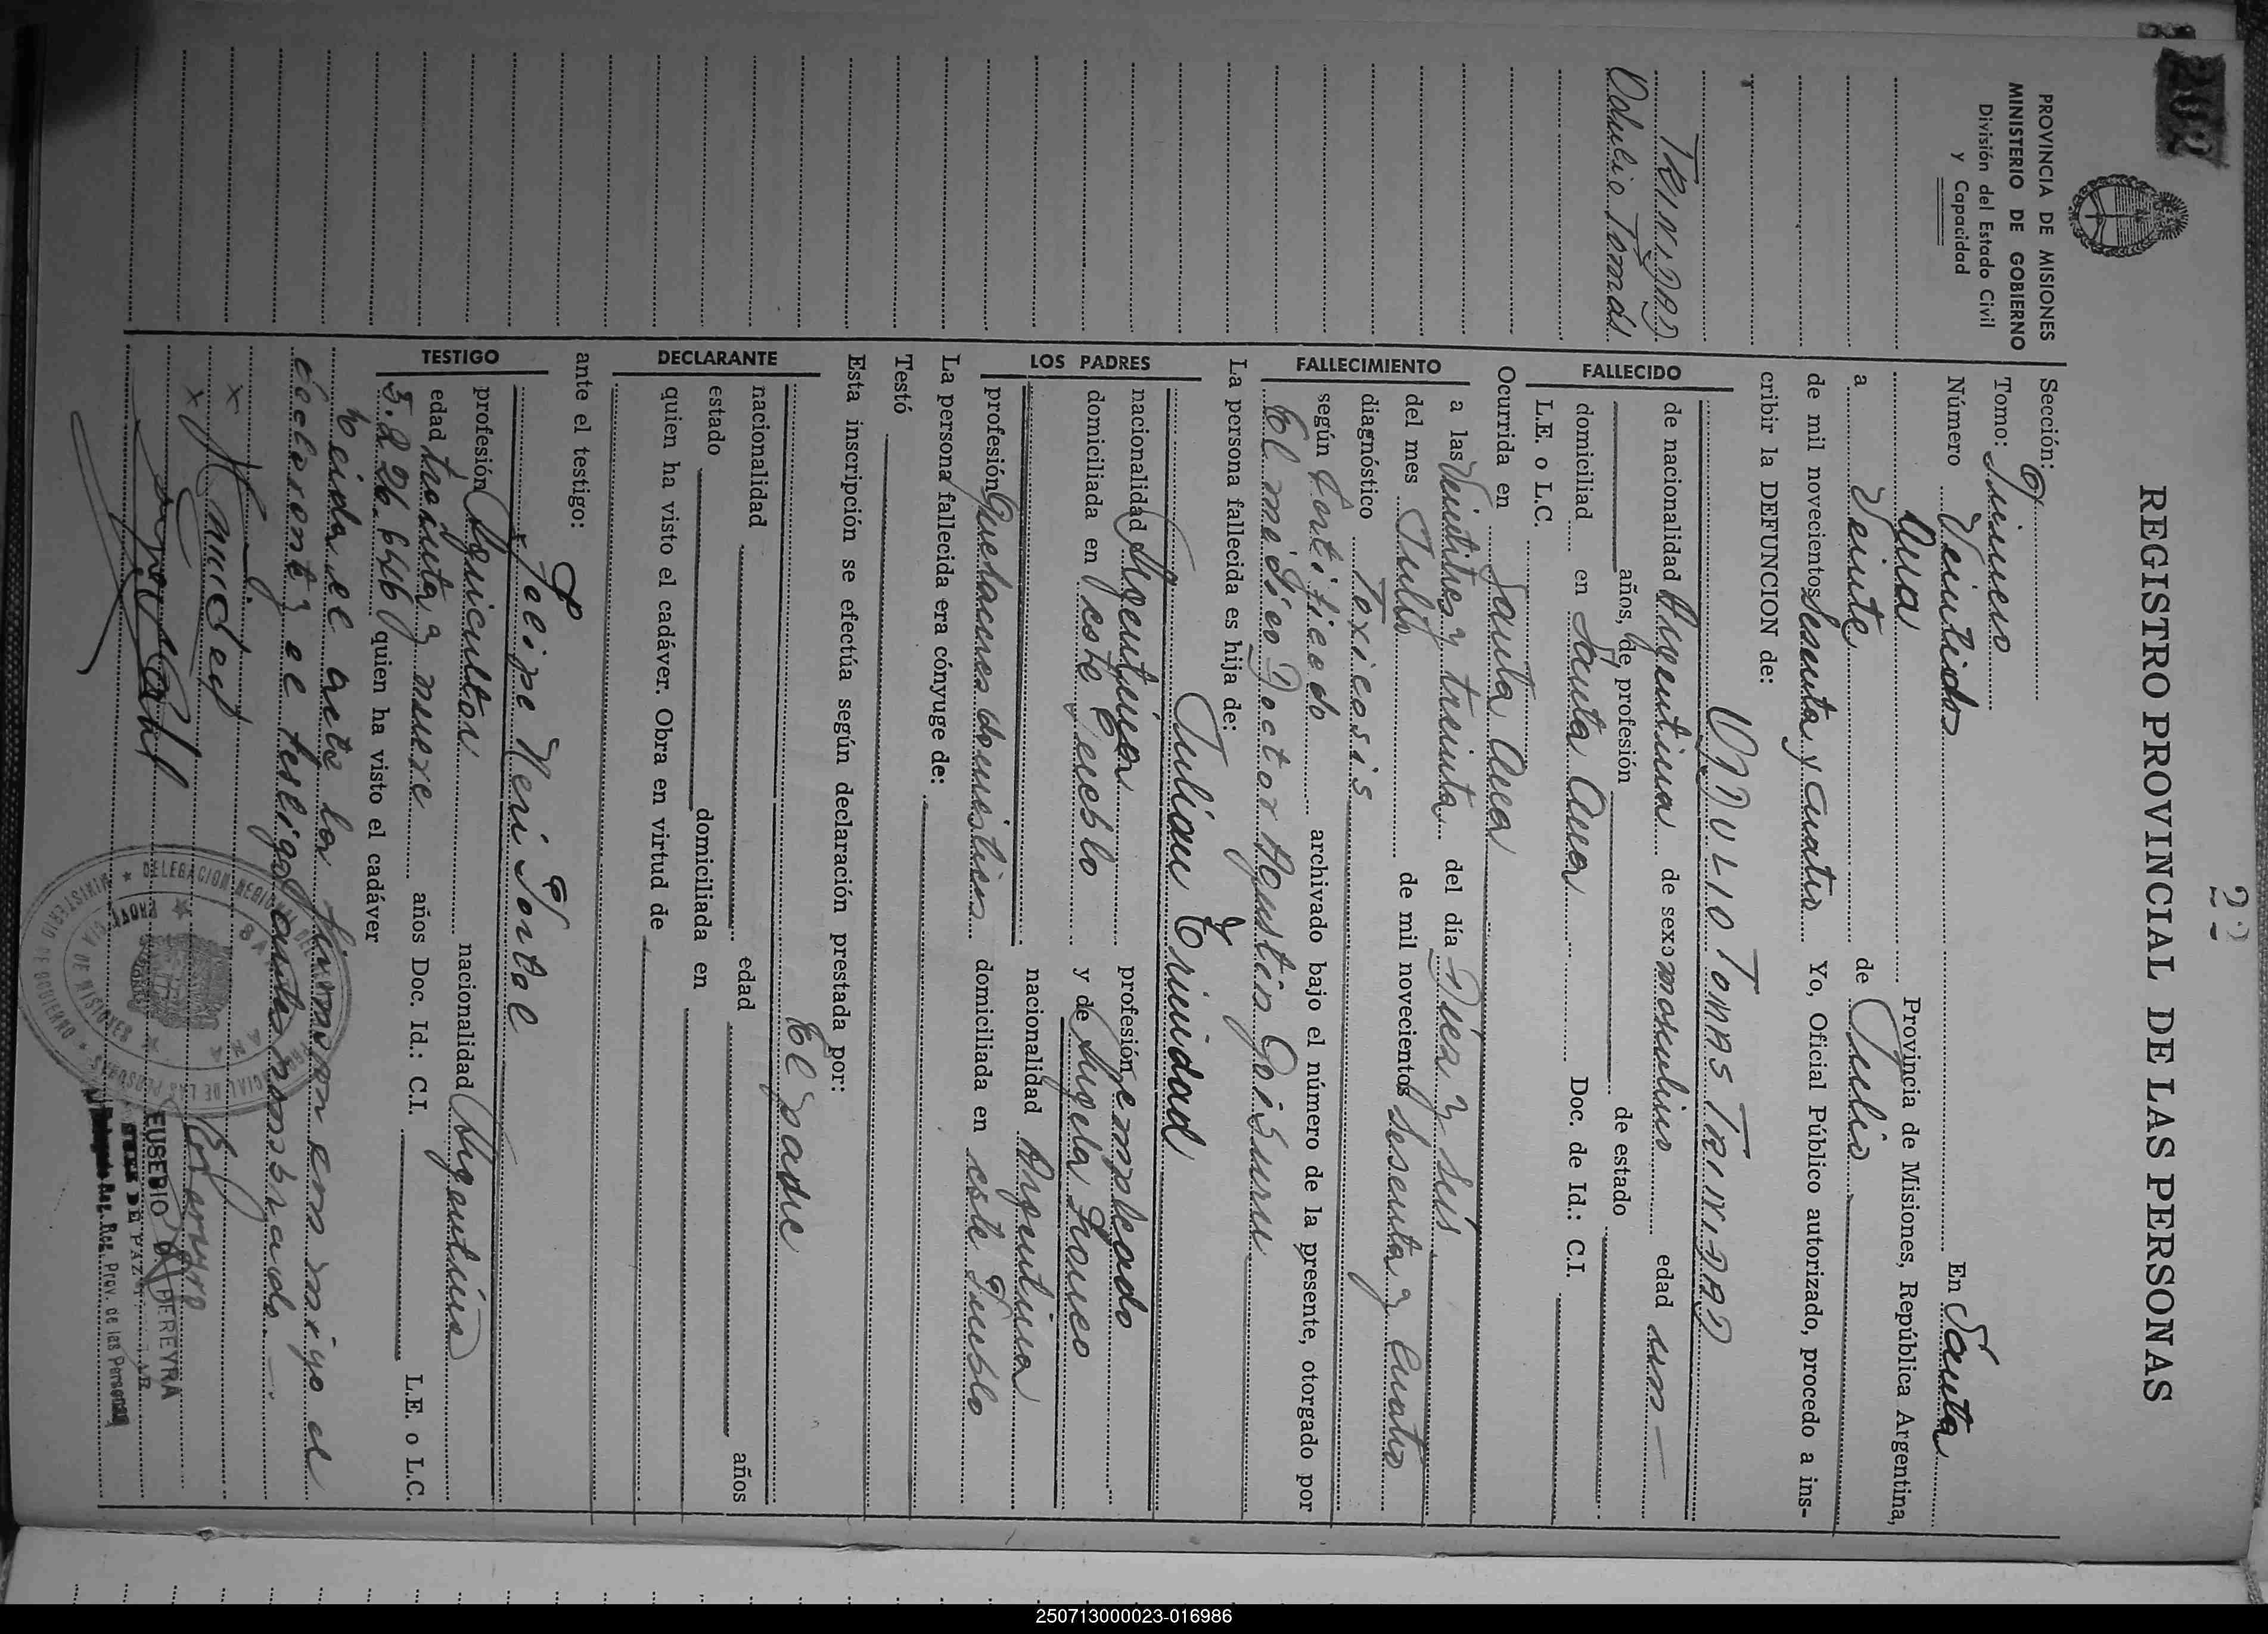 22
202
REGISTRO PROVINCIAL DE LAS PERSONAS
PROVINCIA DE MISIONES
MINISTERIO DE GOBIERNO
División del Estado Civil
y Capacidad
TRINIDAD
Odulio Tomás
Sección:
Tomo: Primero
Número Veintidos En Santa
Ana Provincia de Misiones, República Argentina,
a Veinte de Julio
de mil novecientos Sesenta y cuatro Yo, Oficial Público autorizado, procedo a ins-
cribir la DEFUNCION de:
FALLECIDO
ODULIO TOMAS TRINIDAD
de nacionalidad Argentina de sexo masculino edad un
años, de profesión de estado
domiciliad en Santa Ana Doc. de Id.: C.I.
L.E. o L.C.
FALLECIMIENTO
Ocurrida en Santa Ana
a las Veintitres y treinta del día Diez y Seis
del mes Julio de mil novecientos Sesenta y Cuatro
diagnóstico Toxicosis
según Certificado archivado bajo el número de la presente, otorgado por
El médico Doctor Agustin
La persona fallecida es hija de:
LOS PADRES
Julian Trinidad
nacionalidad Argentina profesión empleado
domiciliada en este Pueblo y de Angela Franco
nacionalidad Argentina
profesión Quehaceres domesticos domiciliada en este Pueblo
La persona fallecida era cónyuge de:
Testó
Esta inscripción se efectúa según declaración prestada por:
DECLARANTE
El padre
nacionalidad edad años
estado domiciliada en
quien ha visto el cadáver. Obra en virtud de
ante el testigo:
TESTIGO
Felipe Neri
profesión Agricultor nacionalidad Argentina
edad treinta y nueve años Doc. Id.: C.I. L.E. o L.C.
quien ha visto el cadáver
Leida el acta la firmaron conmigo el
declarante y el testigo antes nombrado.
EUSEBIO PEREYRA
JUEZ DE PAZ
Reg. Prov. de las Personas
250713000023-016986